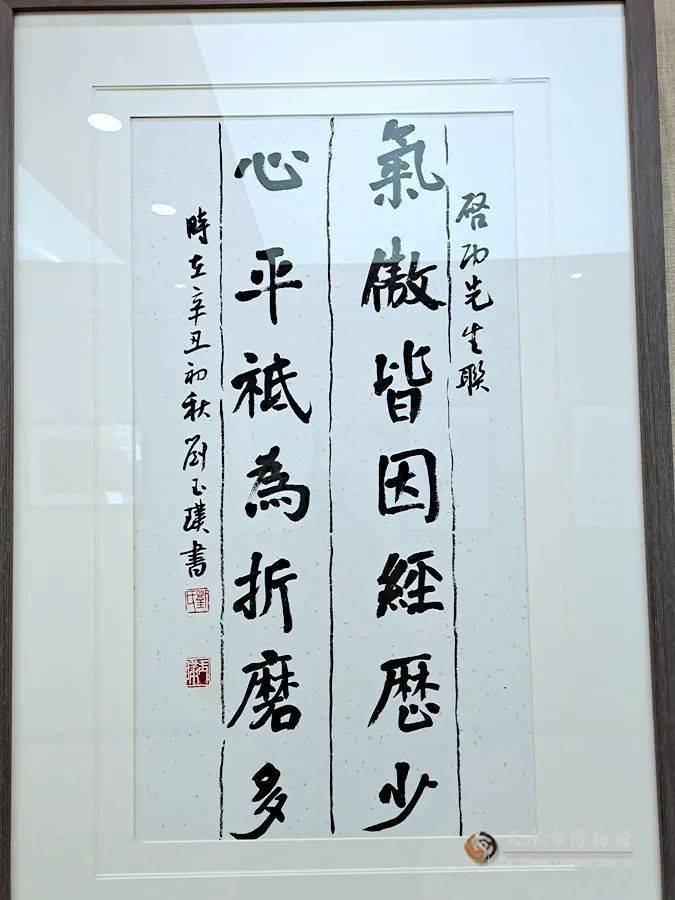 啓功先生聯
氣傲皆因經歷少
心平祗為折磨多
時在辛丑初秋劉玉璞書
劉氏
玉璞
天水市博物館